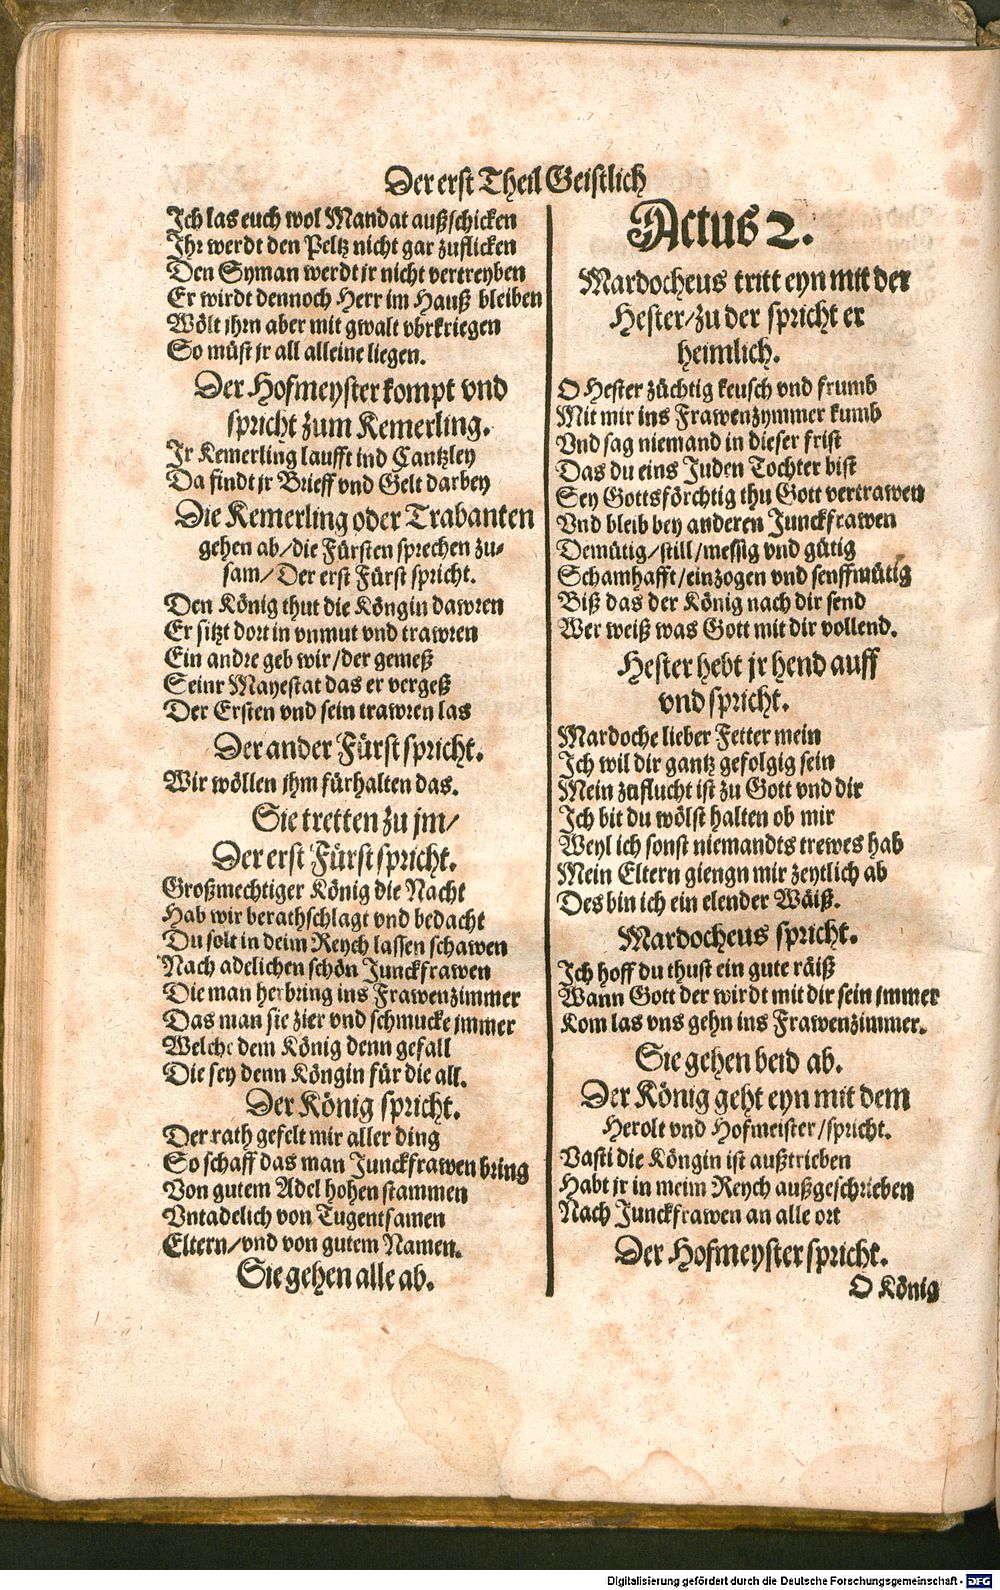 Der erst Theil Geistlich
Ich las euch wol Mandat außschicken
Ihr werdt den Peltz nicht gar zuflicken
Den Syman werdt jr nicht vertreyben
Er wirdt dennoch Herr im Hauß bleiben
Wölt jhrn aber mit gwalt vbrkriegen
So müst jr all alleine liegen.
Der Hofmeyster kompt vnd
spricht zum Kemerling.
Jr Kemerling laufft ind Cantzley
Da findt jr Brieff vnd Gelt darbey
Die Kemerling oder Trabanten
gehen ab/die Fürsten sprechen zu-
sam/Der erst Fürst spricht.
Den König thut die Köngin dawren
Er sitzt dort in vnmut vnd trawren
Ein andre geb wir/der gemeß
Seinr Mayestat das er vergeß
Der Ersten vnd sein trawren las
Der ander Fürst spricht.
Wir wöllen jhm fürhalten das.
Sie tretten zu jm/
Der erst Fürst spricht.
Großmechtiger König die Nacht
Hab wir berathschlagt vnd bedacht
Du solt in deim Reych lassen schawen
Nach adelichen schön Junckfrawen
Die man herbring ins Frawenzimmer
Das man sie zier vnd schmucke jmmer
Welche dem König denn gefall
Die sey denn Köngin für die all.
Der König spricht.
Der rath gefelt mir aller ding
So schaff das man Junckfrawen bring
Von gutem Adel hohen stammen
Vntadelich von Tugentsamen
Eltern/vnd von gutem Namen.
Sie gehen alle ab.
Actus 2.
Mardocheus tritt eyn mit der
Hester/zu der spricht er
heimlich.
O Hester züchtig keusch vnd frumb
Mit mir ins Frawenzymmer kumb
Vnd sag niemand in dieser frist
Das du eins Juden Tochter bist
Sey Gottsförchtig thu Gott vertrawen
Vnd bleib bey anderen Junckfrawen
Demütig/still/messig vnd gütig
Schamhafft/einzogen vnd senffmütig
Biß das der König nach dir send
Wer weiß was Gott mit dir vollend.
Hester hebt jr hend auff
vnd spricht.
Mardoche lieber Fetter mein
Ich wil dir gantz gefolgig sein
Mein zuflucht ist zu Gott vnd dir
Ich bit du wölst halten ob mir
Weyl ich sonst niemandts trewes hab
Mein Eltern giengn mir zeytlich ab
Des bin ich ein elender Wäiß.
Mardocheus spricht.
Ich hoff du thust ein gute räiß
Wann Gott der wirdt mit dir sein jmmer
Kom las vns gehn ins Frawenzimmer.
Sie gehen beid ab.
Der König geht eyn mit dem
Herolt vnd Hofmeister/spricht.
Vasti die Köngin ist außtrieben
Habt jr in meim Reych außgeschrieben
Nach Junckfrawen an alle ort
Der Hofmeyster spricht.
O König
Digitalisierung gefördert durch die Deutsche Forschungsgemeinschaft - DFG